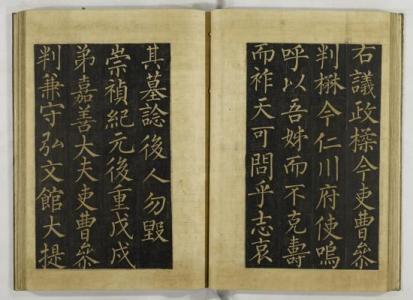 右議政㰒今吏曹參
判楙今仁川府使嗚
呼以吾姊而不克壽
而祚天可問乎志哀
其墓諗後人勿毀
崇禎紀元後重戊戌
弟嘉善大夫吏曹參
判兼守弘文館大提